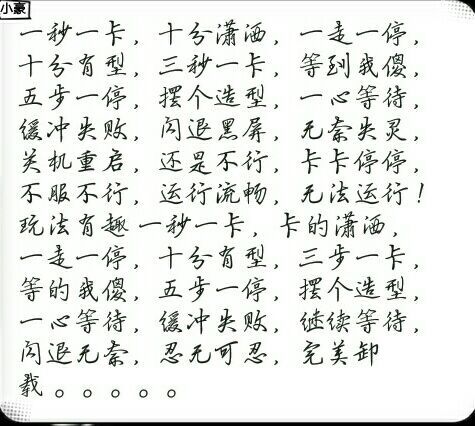 小豪
一秒一卡，十分潇洒，一走一停，
十分有型，三秒一卡，等到我傻，
五步一停，摆个造型，一心等待，
缓冲失败，闪退黑屏，无奈失灵，
关机重启，还是不行，卡卡停停，
不服不行，运行流畅，无法运行！
玩法有趣一秒一卡，卡的潇洒，
一走一停，十分有型，三步一卡，
等的我傻，五步一停，摆个造型，
一心等待，缓冲失败，继续等待，
闪退无奈，忍无可忍，完美卸
载。。。。。